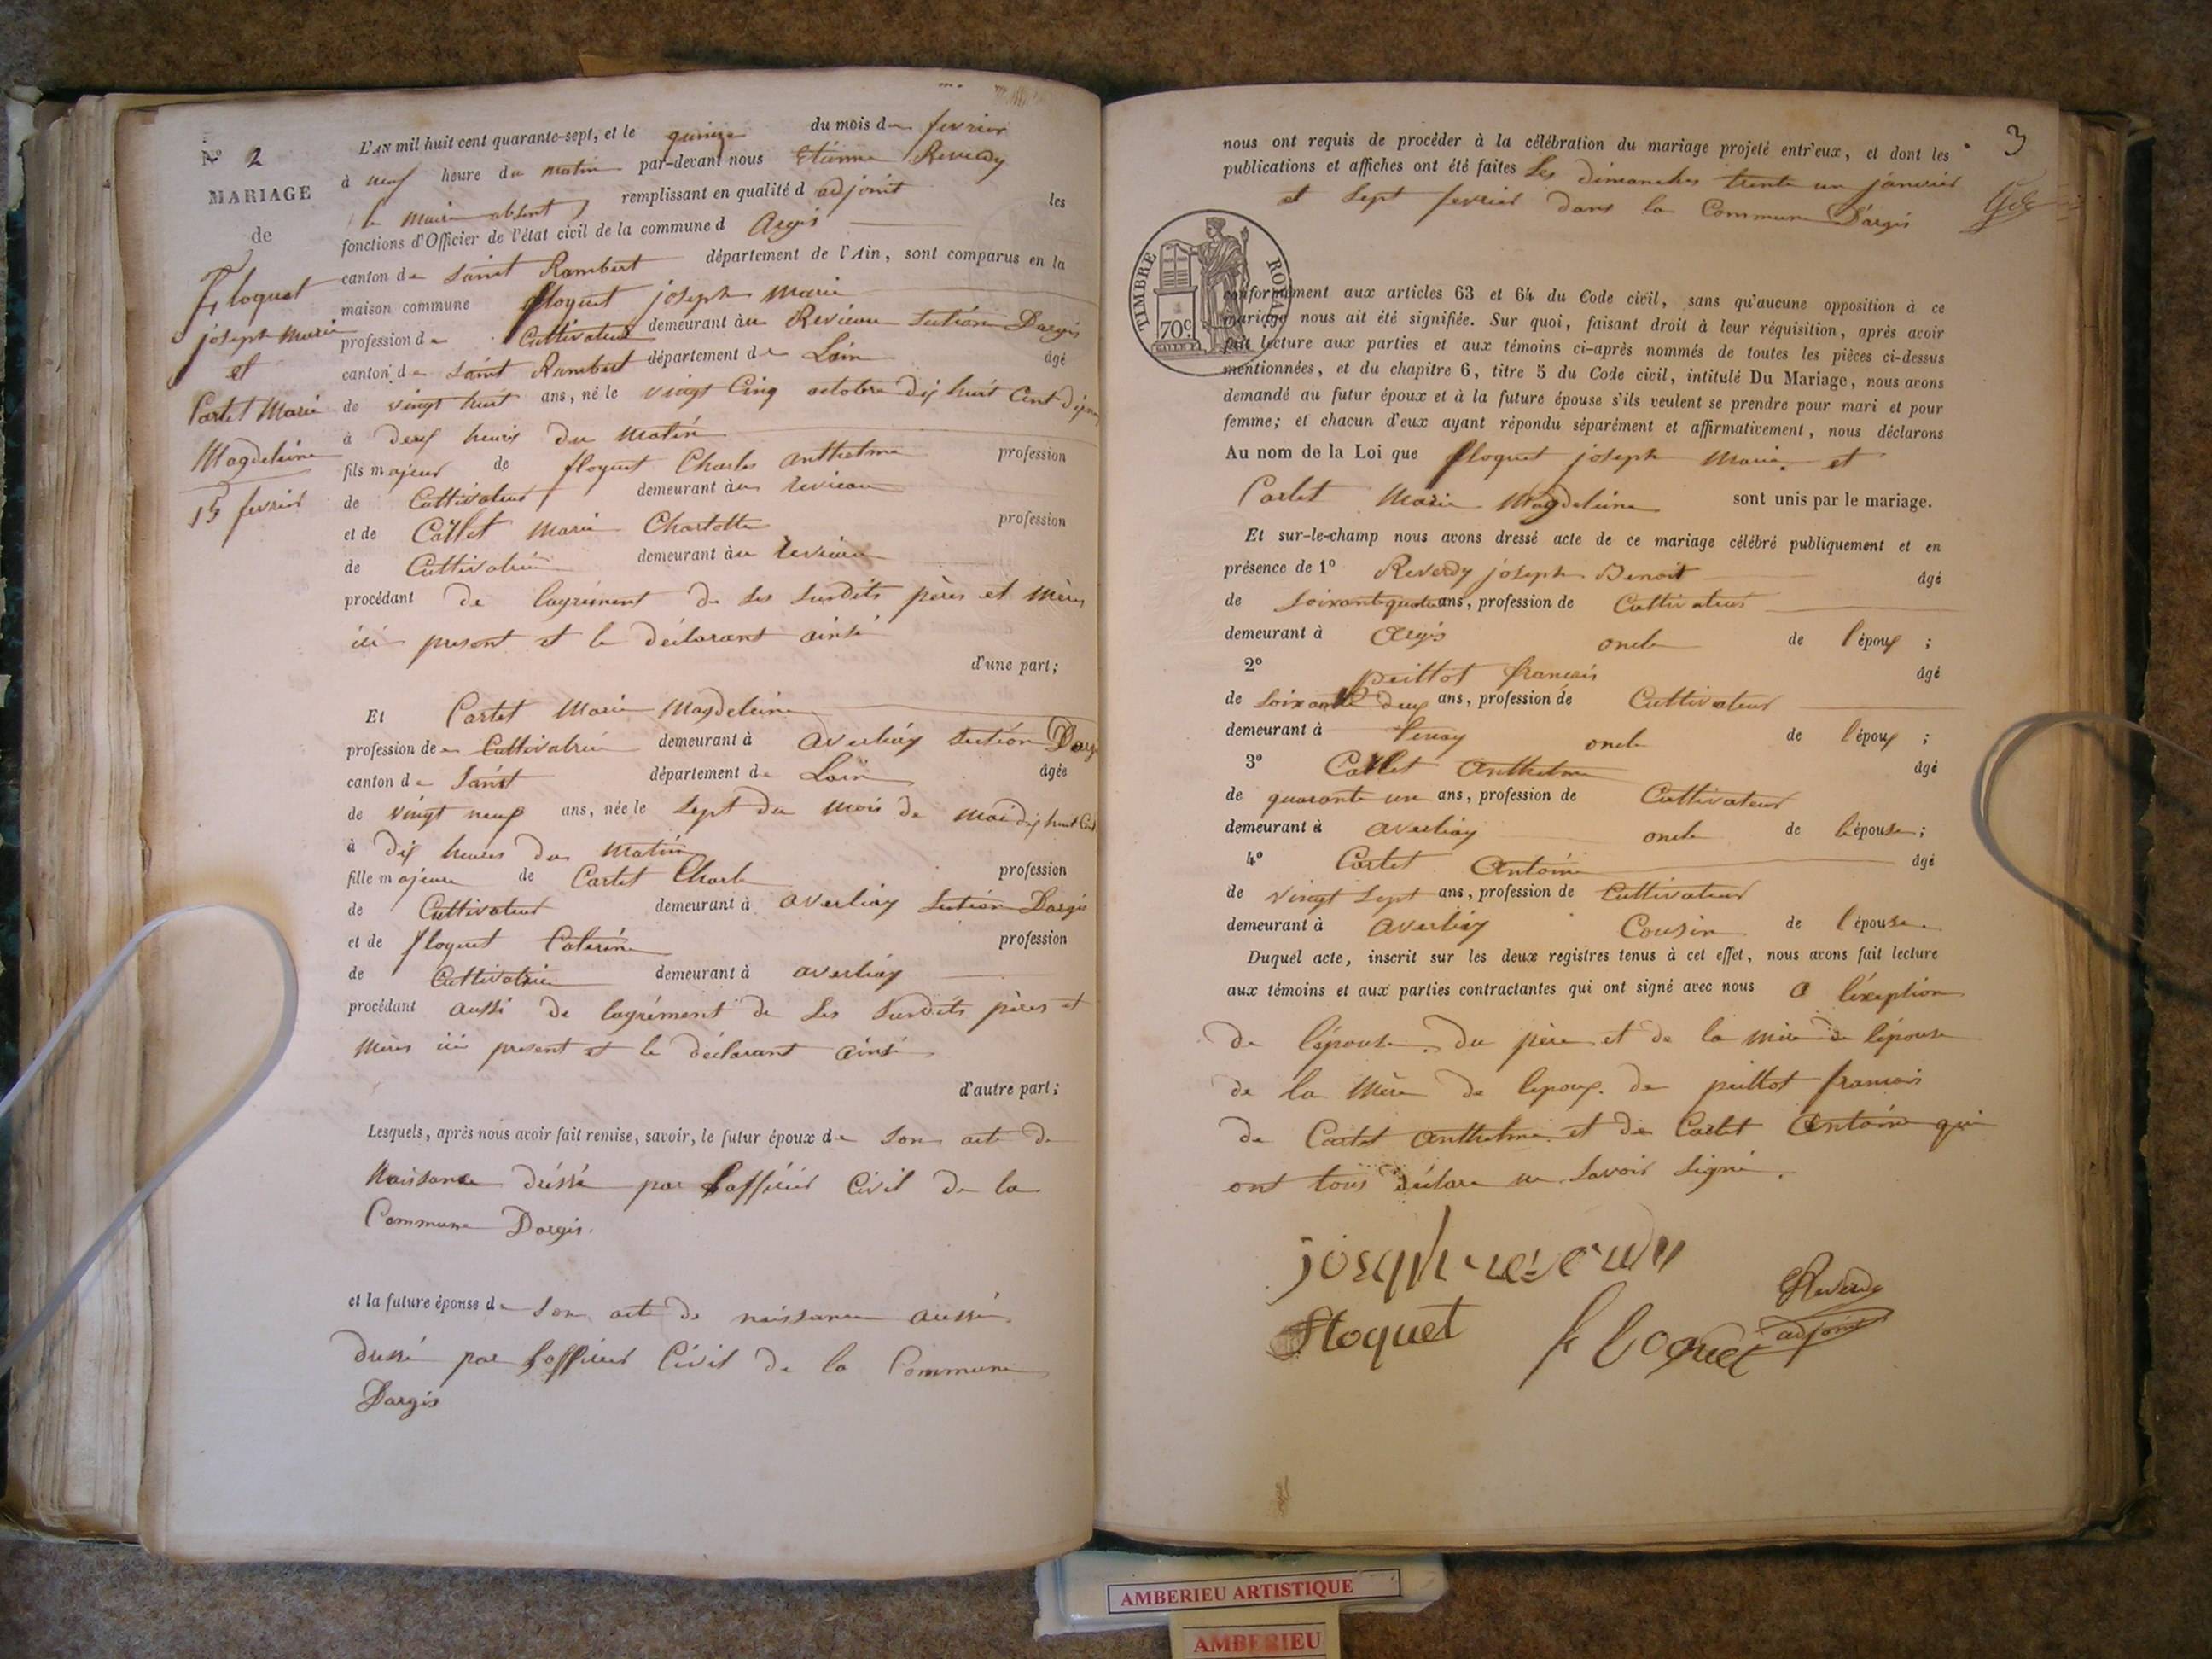 N° 2
MARIAGE
de
Floquet
joseph Marie
et
Cartet Marie
Magdeleine
15 fevrier
L'AN mil huit cent quarante-sept, et le quinze du mois de fevrier
à neuf heure du matin par-devant nous Etienne Reverdy
le maire absent remplissant en qualité d adjoint les
fonctions d'Officier de l'état civil de la commune d Argis
canton de saint Rambert département de l'Ain, sont comparus en la
maison commune floquet joseph Marie
profession de Cultivateur demeurant au Revicau section Dargis
canton de saint Rambert département de Lain âgé
de vingt huit ans, né le vingt Cinq octobre dix huit Cent dix
à deux heures du Matin
fils majeur de floquet Charles anthelme profession
de Cultivateur demeurant au revicau
et de Cartet Marie Charlotte profession
de Cultivatrice demeurant au revicau
procédant de lagrément de ses susdits pères et Mères
ici present et le déclarant ainsi
d'une part;
Et Cartet Marie Magdeleine
profession de Cultivatrice demeurant à averliay section Dargis
canton de Saint département de Lain âgée
de vingt neuf ans, née le sept du mois de mai dix huit Cent
à dix heures du Matin
fille majeure de Cartet Charle profession
de Cultivateur demeurant à averliay section Dargis
et de floquet Caterine profession
de Cultivatrice demeurant à averliay
procédant aussi de lagrément de ses susdits pères et
Mères ici present et le déclarant ainsi
d'autre part;
Lesquels, après nous avoir fait remise, savoir, le futur époux de son acte de
Naissance dréssé par Lofficier Civil de la
Commune Dargis.
et la future épouse de son acte de naissance aussi
dressé par Lofficier Civil de la Commune
Dargis
3
nous ont requis de procéder à la célébration du mariage projeté entr'eux, et dont les
publications et affiches ont été faites Les dimanches trente un janvier
et sept fevrier dans la Commune D'argis
TIMBRE ROYAL
70c
conformément aux articles 63 et 64 du Code civil, sans qu'aucune opposition à ce
mariage nous ait été signifiée. Sur quoi, faisant droit à leur réquisition, après avoir
fait lecture aux parties et aux témoins ci-après nommés de toutes les pièces ci-dessus
mentionnées, et du chapitre 6, titre 5 du Code civil, intitulé Du Mariage, nous avons
demandé au futur époux et à la future épouse s'ils veulent se prendre pour mari et pour
femme; et chacun d'eux ayant répondu séparément et affirmativement, nous déclarons
Au nom de la Loi que floquet joseph Marie et
Cartet Marie Magdeleine sont unis par le mariage.
Et sur-le-champ nous avons dressé acte de ce mariage célébré publiquement et en
présence de 1° Reverdy joseph Benoit âgé
de soixante quatre ans, profession de Cultivateur
demeurant à Argis oncle de l'époux ;
2° peillot francois âgé
de soixante deux ans, profession de Cultivateur
demeurant à tenay oncle de l'époux ;
3° Cartet Anthelme âgé
de quarante un ans, profession de Cultivateur
demeurant à averliay oncle de l'épouse ;
4° Cartet Antoine âgé
de vingt sept ans, profession de Cultivateur
demeurant à averliay Cousin de l'épouse
Duquel acte, inscrit sur les deux registres tenus à cet effet, nous avons fait lecture
aux témoins et aux parties contractantes qui ont signé avec nous a léxeption
de lépouse. du père et de la mère de lépouse
de la Mère de lepoux. de peillot francois
de Cartet Anthelme et de Cartet Antoine qui
ont tous déclaré ne savoir signé.
joseph reverdy
Floquet
floquet
EReverdy
adjoint
AMBERIEU ARTISTIQUE
AMBERIEU